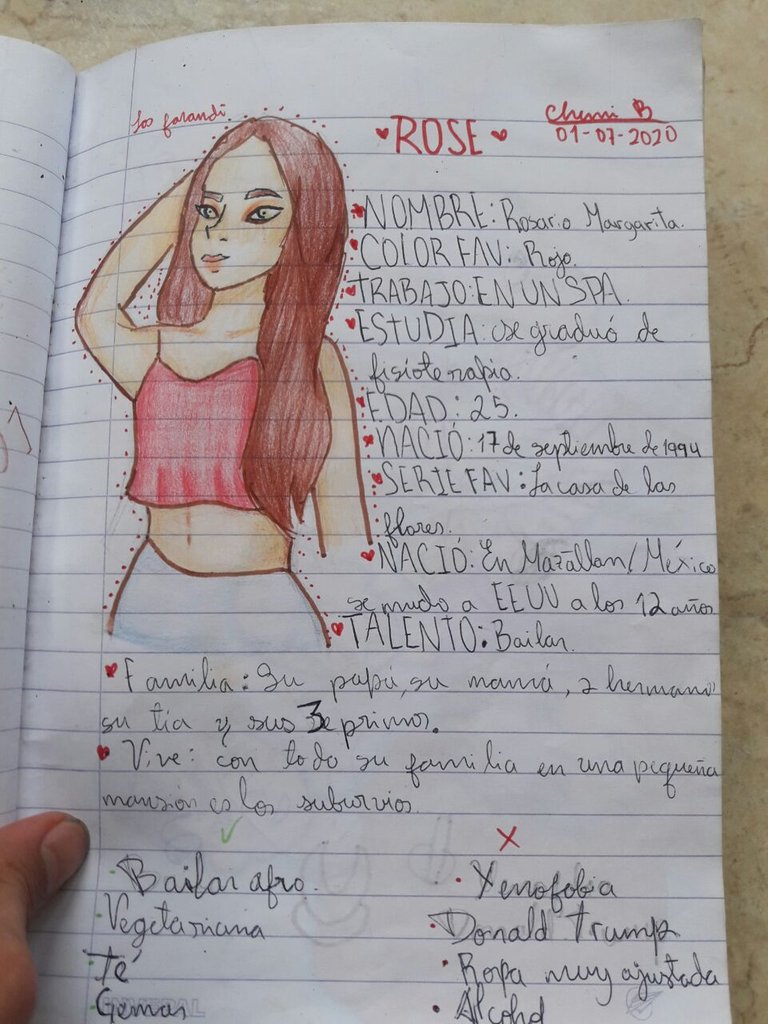 Las farandi
Chemi B
ROSE
01-07-2020
NOMBRE: Rosario Margarita.
COLOR FAV: Rojo.
TRABAJO: EN UN SPA.
ESTUDIA: se graduó de
fisioterapia.
EDAD: 25.
NACIÓ: 17 de septiembre de 1994
SERIE FAV: La casa de las
flores.
NACIÓ: En Mazallan/México
se mudo a EEUU a los 12 años
TALENTO: Bailar.
Familia: Su papá, su mamá, 2 hermanos
su tía y sus 3 primos.
Vive: con todo su familia en una pequeña
mansión los suburvios.
Bailar afro.
Vegetariana
Té
Gemas
Xenofobia
Donald Trump
Ropa muy ajustada
Alcohol